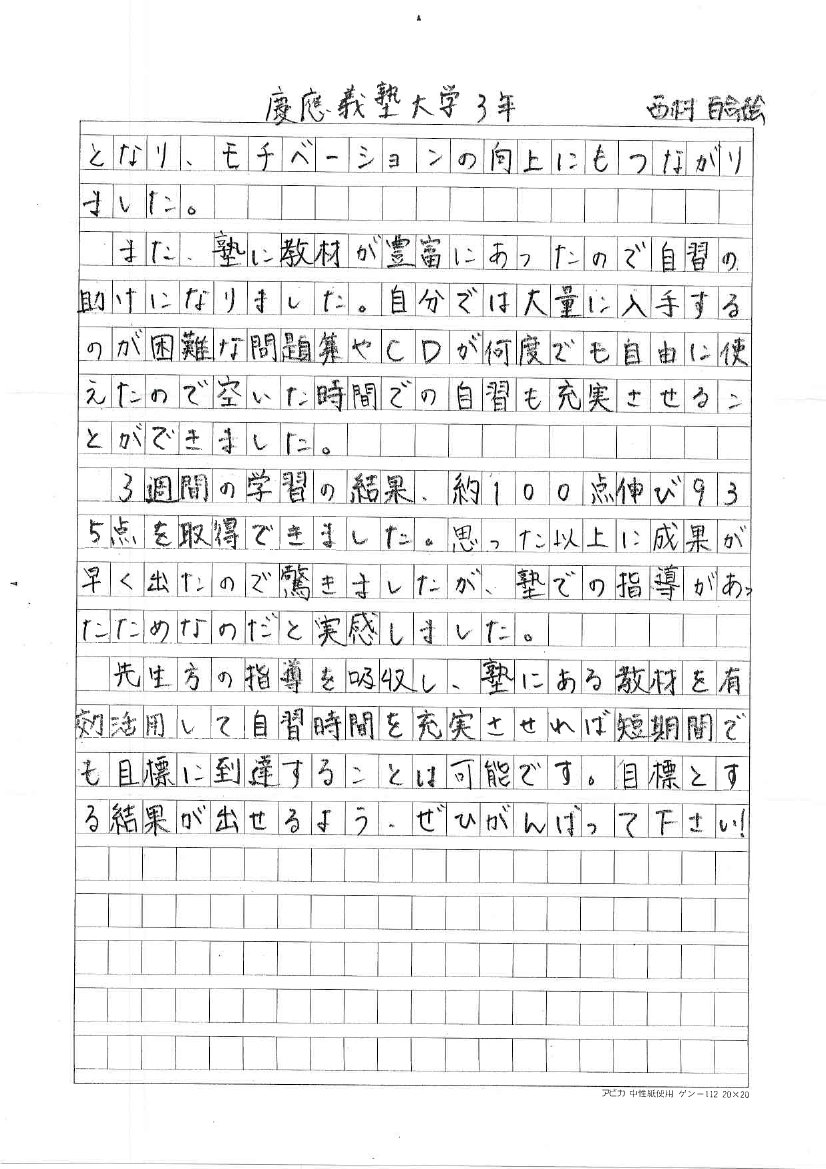 慶應義塾大学3年 西村百合絵
となり、モチベーションの向上にもつながり
ました。
また、塾に教材が豊富にあったので自習の
助けになりました。自分では大量に入手する
のが困難な問題集やCDが何度でも自由に使
えたので空いた時間での自習も充実させるこ
とができました。
3週間の学習の結果、約100点伸び93
5点を取得できました。思った以上に成果が
早く出たので驚きましたが、塾での指導があっ
たためなのだと実感しました。
先生方の指導を吸収し、塾にある教材を有
効活用して自習時間を充実させれば短期間で
も目標に到達することは可能です。目標とす
る結果が出せるよう、ぜひがんばって下さい!
アピカ 中性紙使用 ゲンー112 20×20